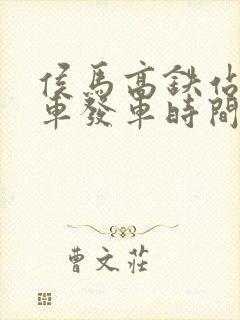 侯馬高鉄佔
車發車時間
曹文莊